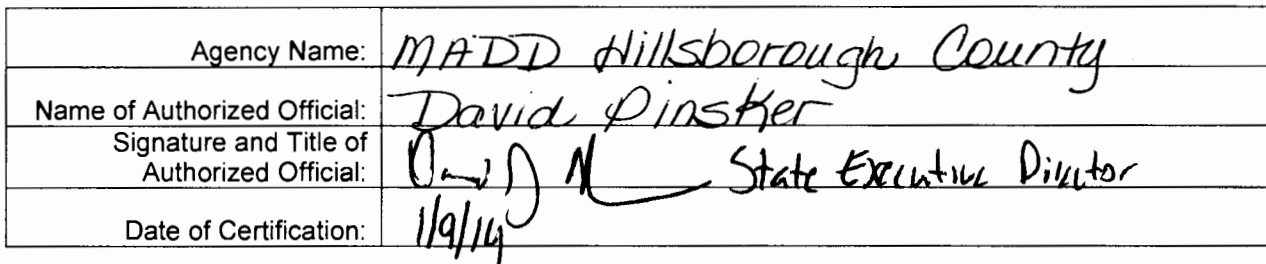 Agency Name: MADD Hillsborough County
Name of Authorized Official: David Pinsker
Signature and Title of
Authorized Official: State Executive Director
Date of Certification: 1/9/14